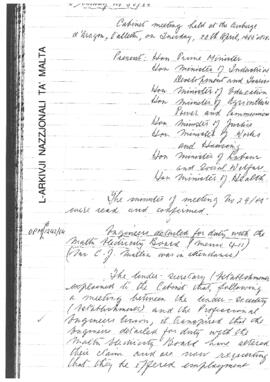 Cabinet meeting held at the Auberge
d'Aragon, Valletta, on Tuesday, 28th April,
Present: Hon. Prime Minister
Hon Minister of Industrial
Development and Tourism
Hon Minister of Education
Hon Minister of Agriculture
Power and Communications
Hon Minister of Justice
Hon Minister of Works
and Housing
Hon Minister of Labour
and Social Welfare
Hon Minister of Health
L-ARKIVJI NAZZJONALI TA' MALTA
The minutes of meeting No 29/64
were read and confirmed.
Engineers detailed for duty with the
Malta Electricity Board (memo
was in attendance)
The Under-Secretary (Establishments)
explained to the Cabinet that following
a meeting between the Under-Secretary
(Establishments) and the Professional
Engineers Union, it transpired that the
Engineers detailed for duty with the
Malta Electricity Board have altered
their claim and are now requesting
that they be offered employment